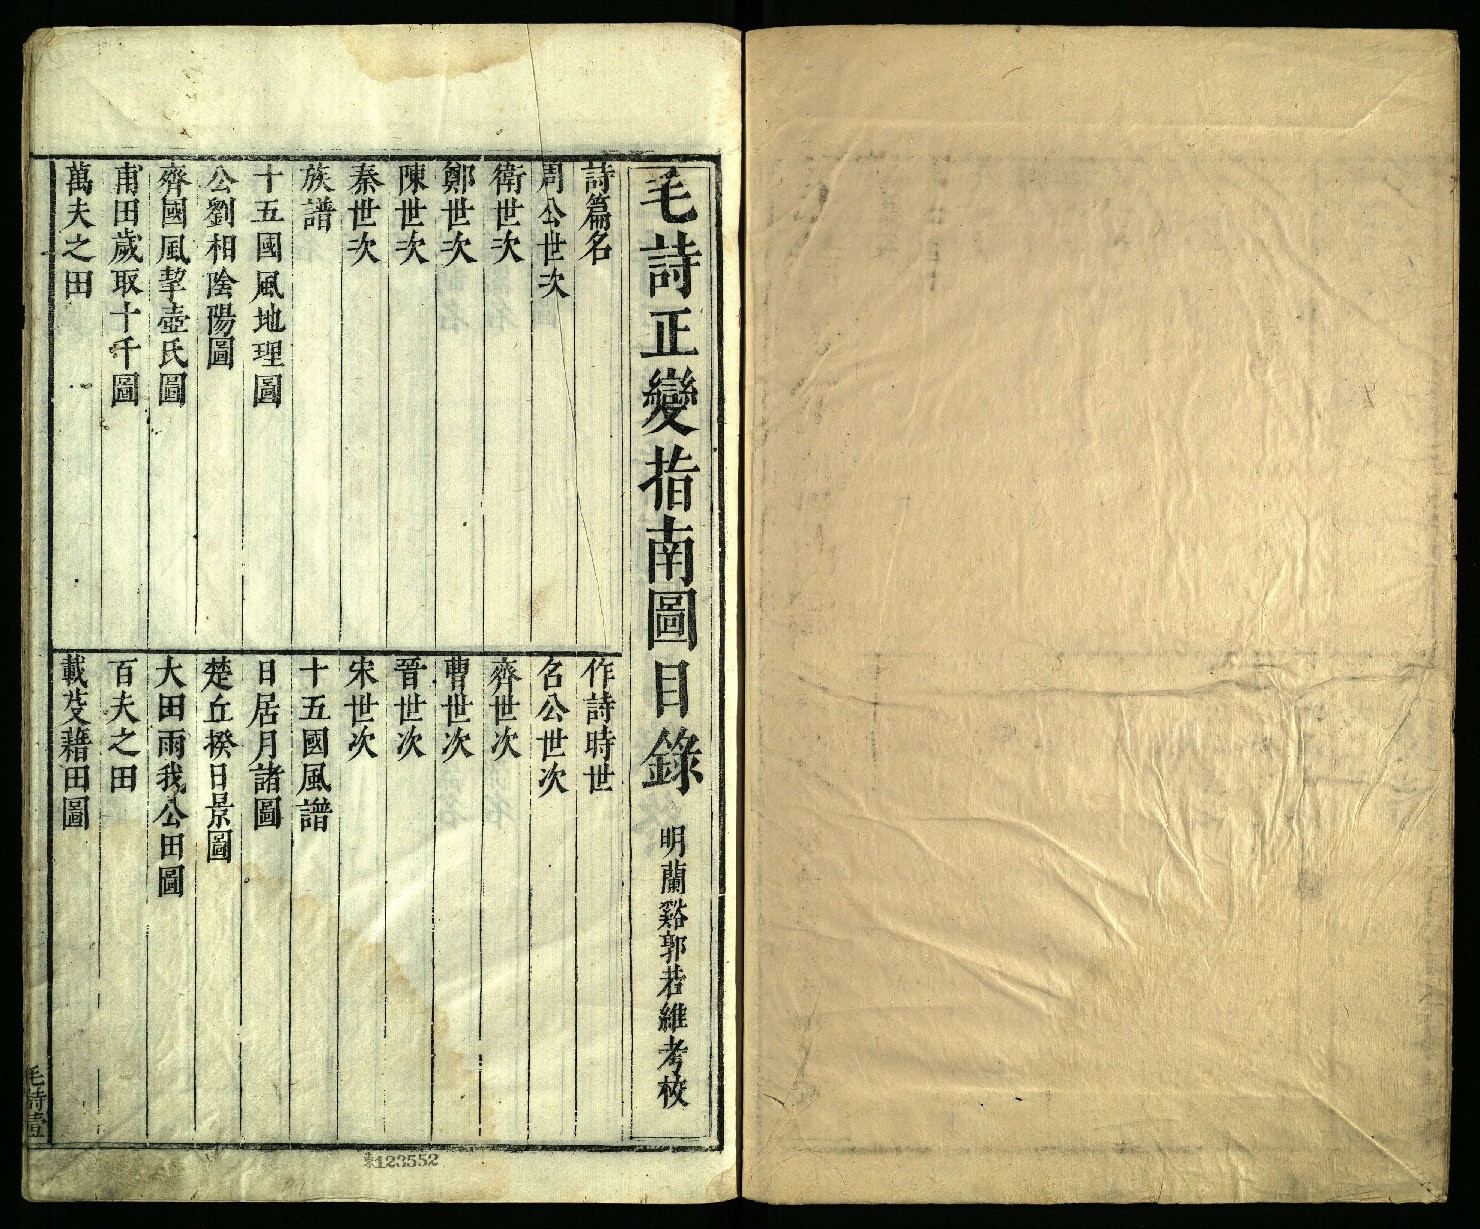 毛詩正變指南圖目錄 明蘭谿郭若維考校
詩篇名 作詩時世
周公世次 召公世次
衛世次 齊世次
鄭世次 曹世次
陳世次 晉世次
秦世次 宋世次
族譜 十五國風譜
十五國風地理圖 日居月諸圖
公劉相陰陽圖 楚丘揆日景圖
齊國風挈壺氏圖 大田雨我公田圖
甫田歲取十千圖 百夫之田
萬夫之田 載芟藉田圖
毛詩壹
東123552